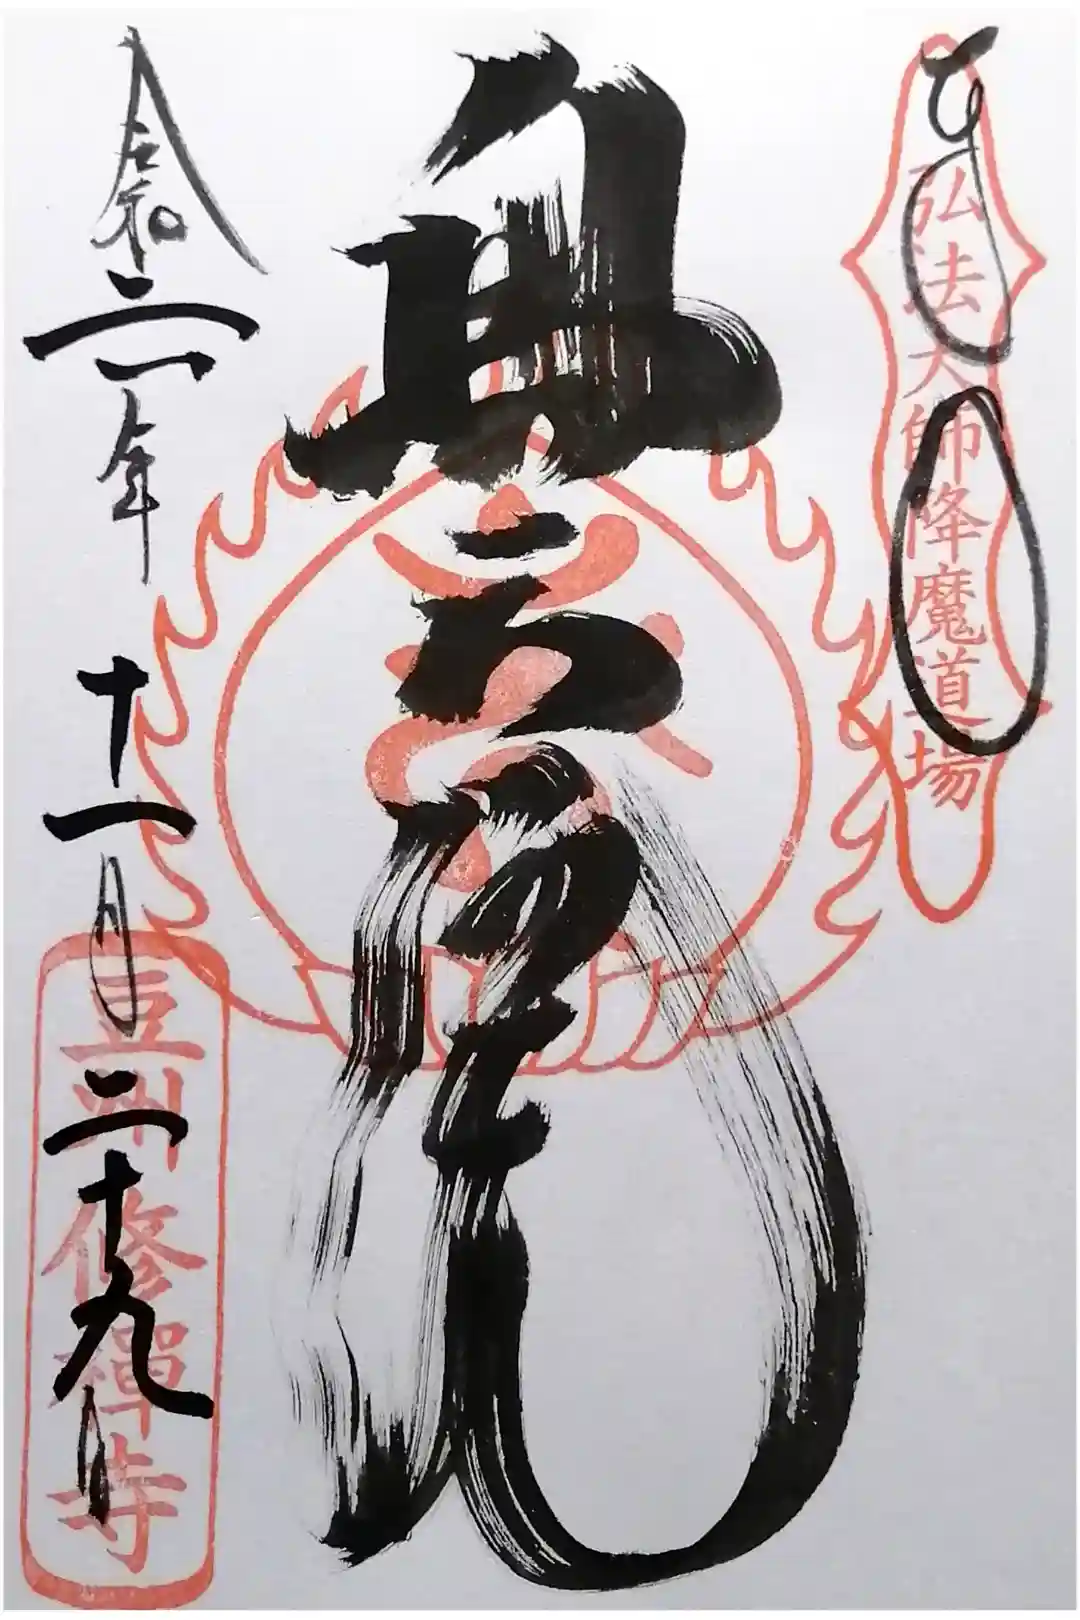 弘法大師降魔道場
奥之院
令和三年十一月二十九日
豆州修禪寺